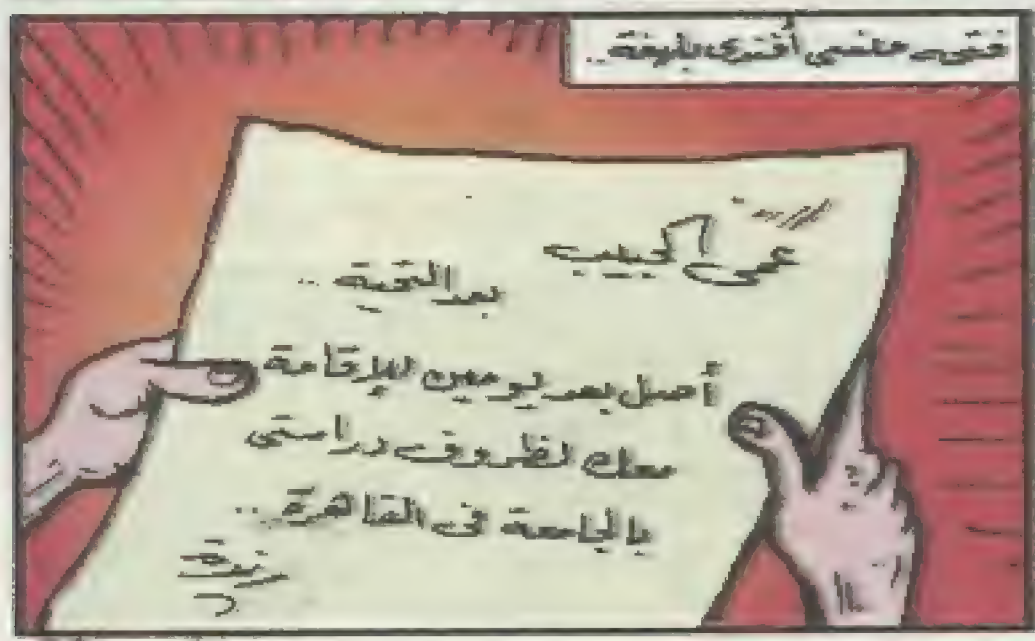 أفندى بلهفة..
عمى الحبيب
بعد التحية ..
أصل بعد يومين للإقامة
معك لظروف دراستى
بالجامعة فى القاهرة ..